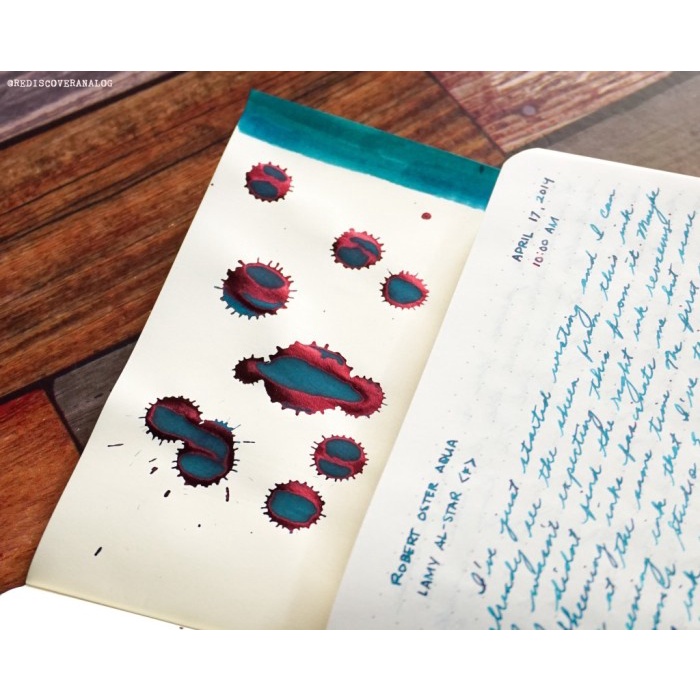 @REDISCOVERANALOG
APRIL 17, 2014
10:00 AM
ROBERT OSTER AQUA
LAMY AL-STAR <F>
I've just started writing and I can
already see the sheen from this ink.
I wasn't expecting this from it. Maybe
I didn't find the right ink reviews!
sheening inks favourite
at the same time. The first
ink that I've
studio
ink